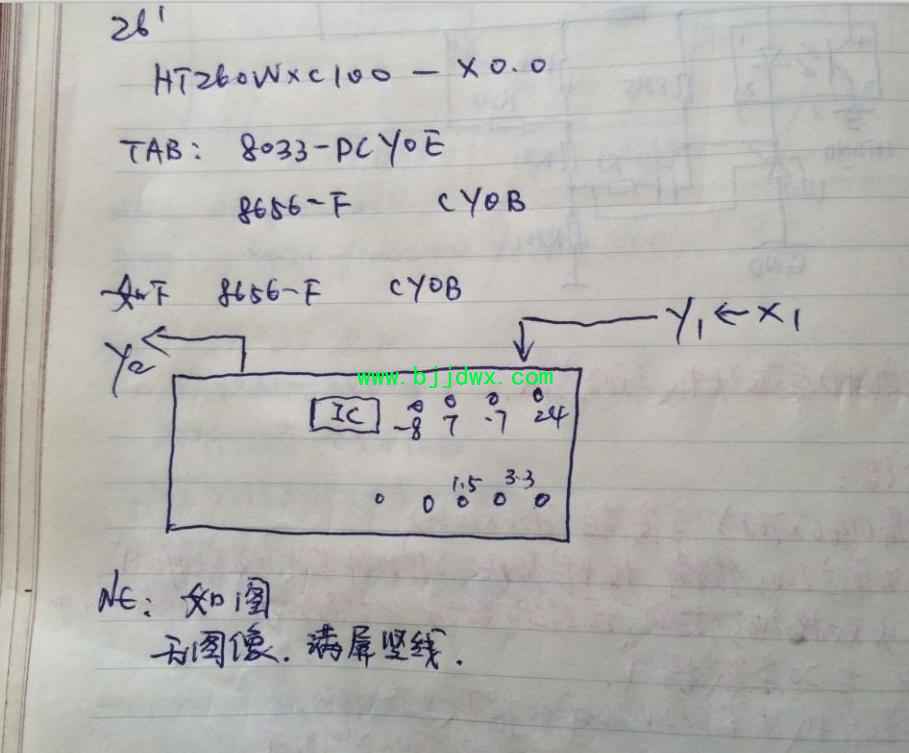 26'
HT260WXC100-X0.0
TAB: 8033-DCY0E
8656-F CY0B
如下 8656-F CY0B
Y1←X1
Y2
www.bjjdwx.com
IC -8 7 -7 24
1.5 3.3
NE: 如图
无图像. 满屏竖线.